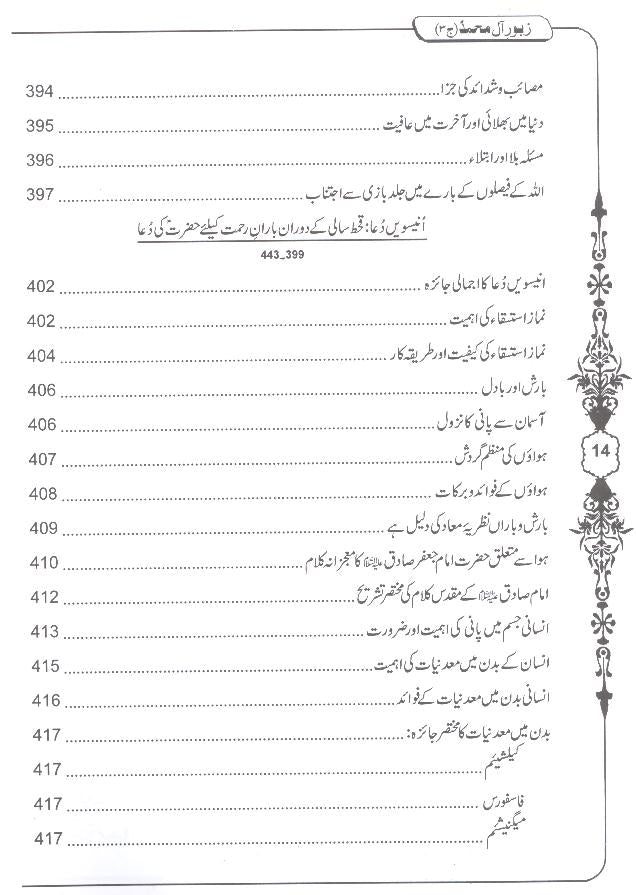 زبورِ آل محمدؐ (ج ۳)
مصائب و شدائد کی جزا ........ 394
دنیا میں بھلائی اور آخرت میں عافیت ........ 395
مسئلہ بلا اور ابتلاء ........ 396
اللہ کے فیصلوں کے بارے میں جلد بازی سے اجتناب ........ 397
اُنیسویں دُعا: قحط سالی کے دوران بارانِ رحمت کیلئے حضرتؑ کی دُعا
443_399
انیسویں دُعا کا اجمالی جائزہ ........ 402
نمازِ استسقاء کی اہمیت ........ 402
نماز استسقاء کی کیفیت اور طریقہ کار ........ 404
بارش اور بادل ........ 406
آسمان سے پانی کا نزول ........ 406
ہواؤں کی منظم گردش ........ 407
ہواؤں کے فوائد و برکات ........ 408
بارش و باراں نظریۂ معاد کی دلیل ہے ........ 409
ہوا سے متعلق حضرت امام جعفر صادق علیہ السلام کا معجزانہ کلام ........ 410
امام صادق علیہ السلام کے مقدس کلام کی مختصر تشریح ........ 412
انسانی جسم میں پانی کی اہمیت اور ضرورت ........ 413
انسان کے بدن میں معدنیات کی اہمیت ........ 415
انسانی بدن میں معدنیات کے فوائد ........ 416
بدن میں معدنیات کا مختصر جائزہ: ........ 417
کیلشیئم ........ 417
فاسفورس ........ 417
میگنیشئم ........ 417
14